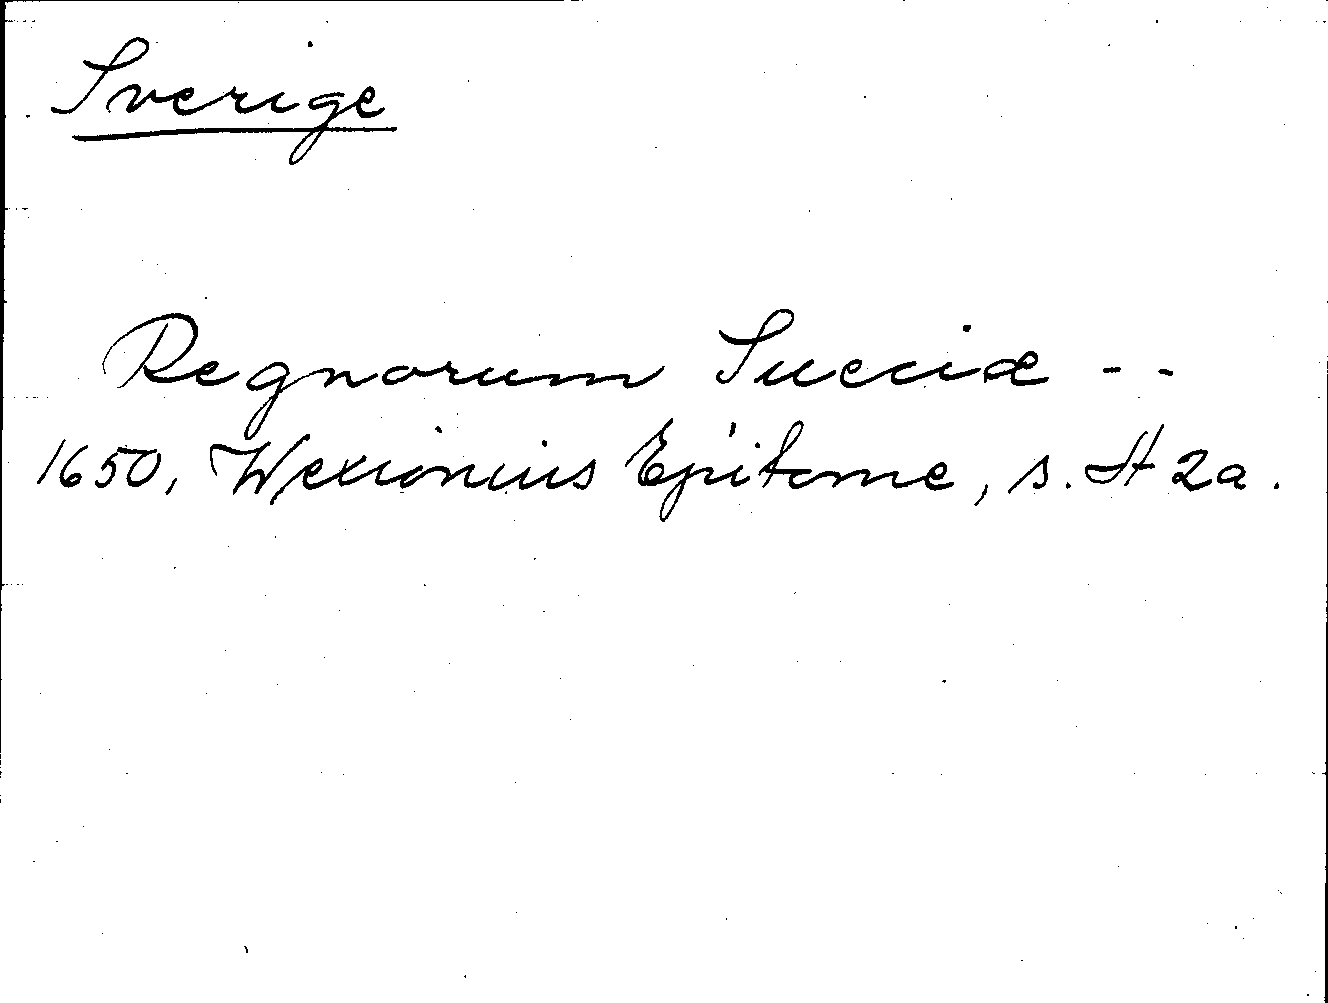 Sverige
Regnorum Sueciæ --
1650, Wexionius Epitome, s. H 2a.